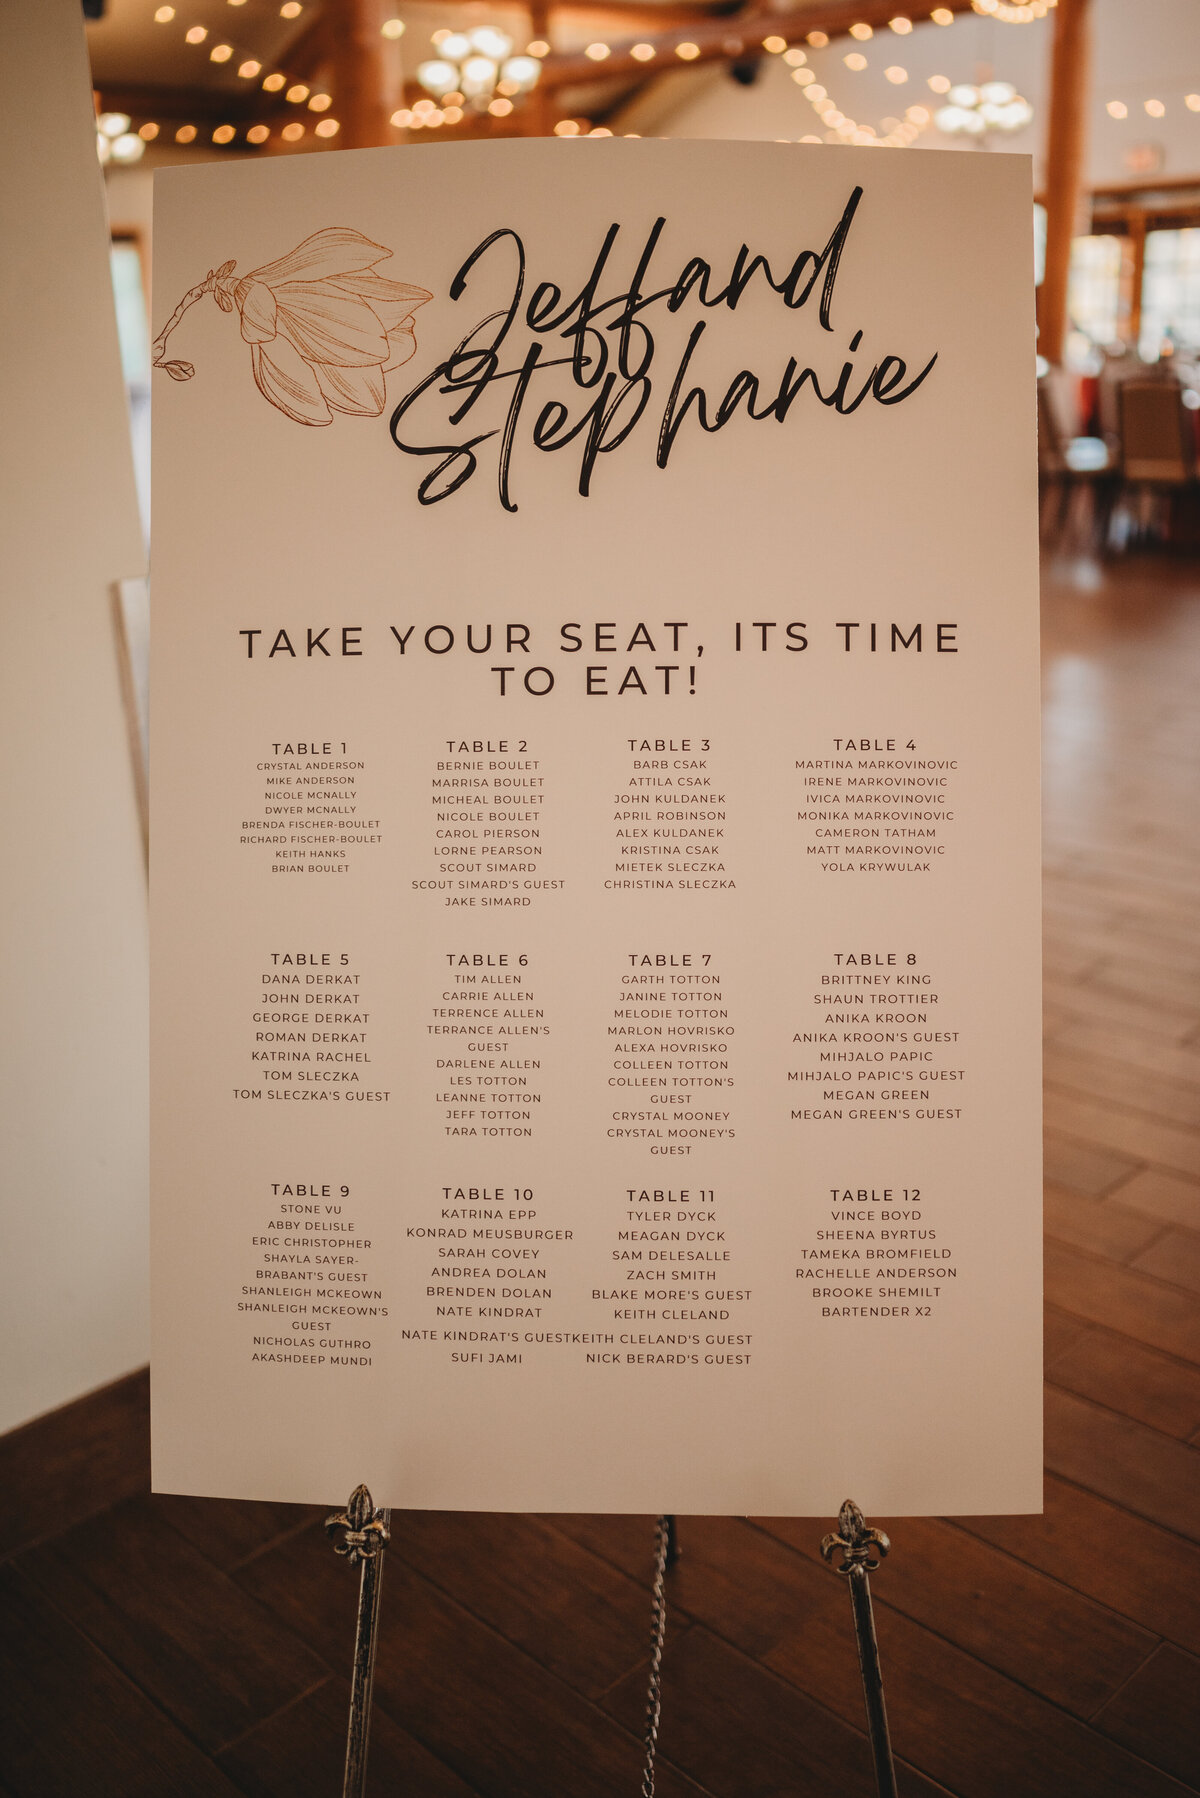 Jeff and
Stephanie
TAKE YOUR SEAT, ITS TIME
TO EAT!
TABLE 1
CRYSTAL ANDERSON
MIKE ANDERSON
NICOLE MCNALLY
DWYER MCNALLY
BRENDA FISCHER-BOULET
RICHARD FISCHER-BOULET
KEITH HANKS
BRIAN BOULET
TABLE 2
BERNIE BOULET
MARRISA BOULET
MICHEAL BOULET
NICOLE BOULET
CAROL PIERSON
LORNE PEARSON
SCOUT SIMARD
SCOUT SIMARD'S GUEST
JAKE SIMARD
TABLE 3
BARB CSAK
ATTILA CSAK
JOHN KULDANEK
APRIL ROBINSON
ALEX KULDANEK
KRISTINA CSAK
MIETEK SLECZKA
CHRISTINA SLECZKA
TABLE 4
MARTINA MARKOVINOVIC
IRENE MARKOVINOVIC
IVICA MARKOVINOVIC
MONIKA MARKOVINOVIC
CAMERON TATHAM
MATT MARKOVINOVIC
YOLA KRYWULAK
TABLE 5
DANA DERKAT
JOHN DERKAT
GEORGE DERKAT
ROMAN DERKAT
KATRINA RACHEL
TOM SLECZKA
TOM SLECZKA'S GUEST
TABLE 6
TIM ALLEN
CARRIE ALLEN
TERRENCE ALLEN
TERRANCE ALLEN'S
GUEST
DARLENE ALLEN
LES TOTTON
LEANNE TOTTON
JEFF TOTTON
TARA TOTTON
TABLE 7
GARTH TOTTON
JANINE TOTTON
MELODIE TOTTON
MARLON HOVRISKO
ALEXA HOVRISKO
COLLEEN TOTTON
COLLEEN TOTTON'S
GUEST
CRYSTAL MOONEY
CRYSTAL MOONEY'S
GUEST
TABLE 8
BRITTNEY KING
SHAUN TROTTIER
ANIKA KROON
ANIKA KROON'S GUEST
MIHJALO PAPIC
MIHJALO PAPIC'S GUEST
MEGAN GREEN
MEGAN GREEN'S GUEST
TABLE 9
STONE VU
ABBY DELISLE
ERIC CHRISTOPHER
SHAYLA SAYER-
BRABANT'S GUEST
SHANLEIGH MCKEOWN
SHANLEIGH MCKEOWN'S
GUEST
NICHOLAS GUTHRO
AKASHDEEP MUNDI
TABLE 10
KATRINA EPP
KONRAD MEUSBURGER
SARAH COVEY
ANDREA DOLAN
BRENDEN DOLAN
NATE KINDRAT
NATE KINDRAT'S GUEST
SUFI JAMI
TABLE 11
TYLER DYCK
MEAGAN DYCK
SAM DELESALLE
ZACH SMITH
BLAKE MORE'S GUEST
KEITH CLELAND
KEITH CLELAND'S GUEST
NICK BERARD'S GUEST
TABLE 12
VINCE BOYD
SHEENA BYRTUS
TAMEKA BROMFIELD
RACHELLE ANDERSON
BROOKE SHEMILT
BARTENDER X2